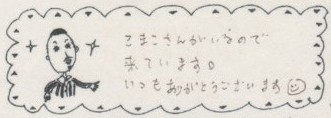 こまこさんがいるので
来ています。
いつもありがとうございます